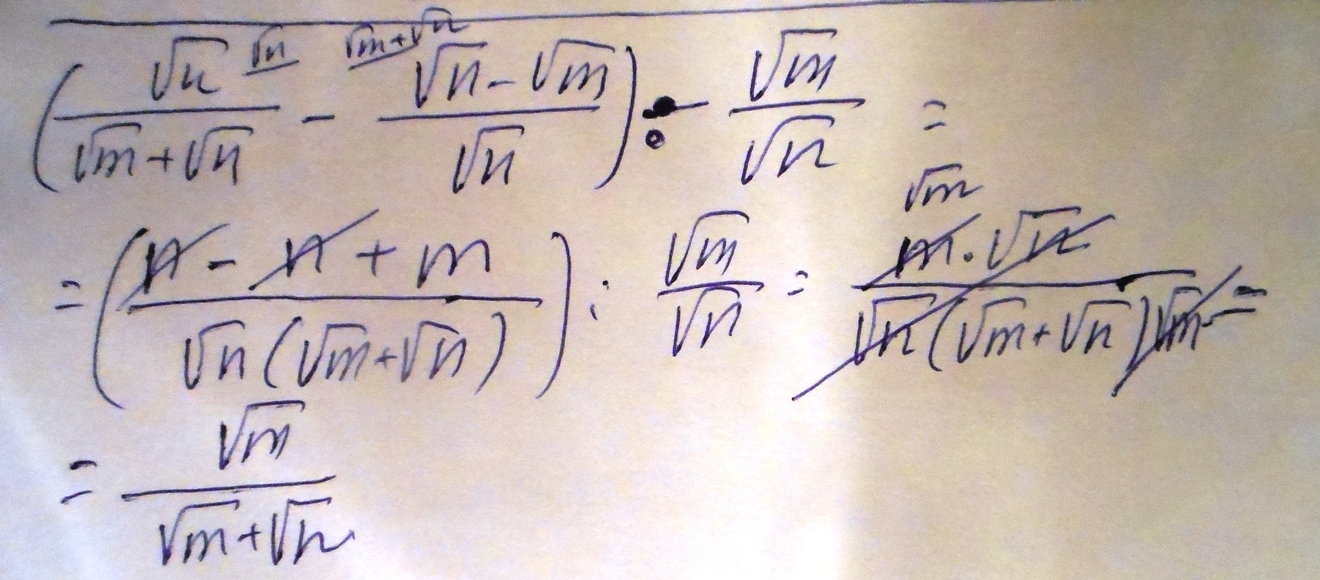 (√n^{√n}/(√m+√n) - ^{√m+√n}(√n-√m)/√n) : √m/√n =
= ((n - n + m)/(√n(√m+√n))) : √m/√n = (m·√n)/(√n(√m+√n)√m) ^{√m} =
= √m/(√m+√n)